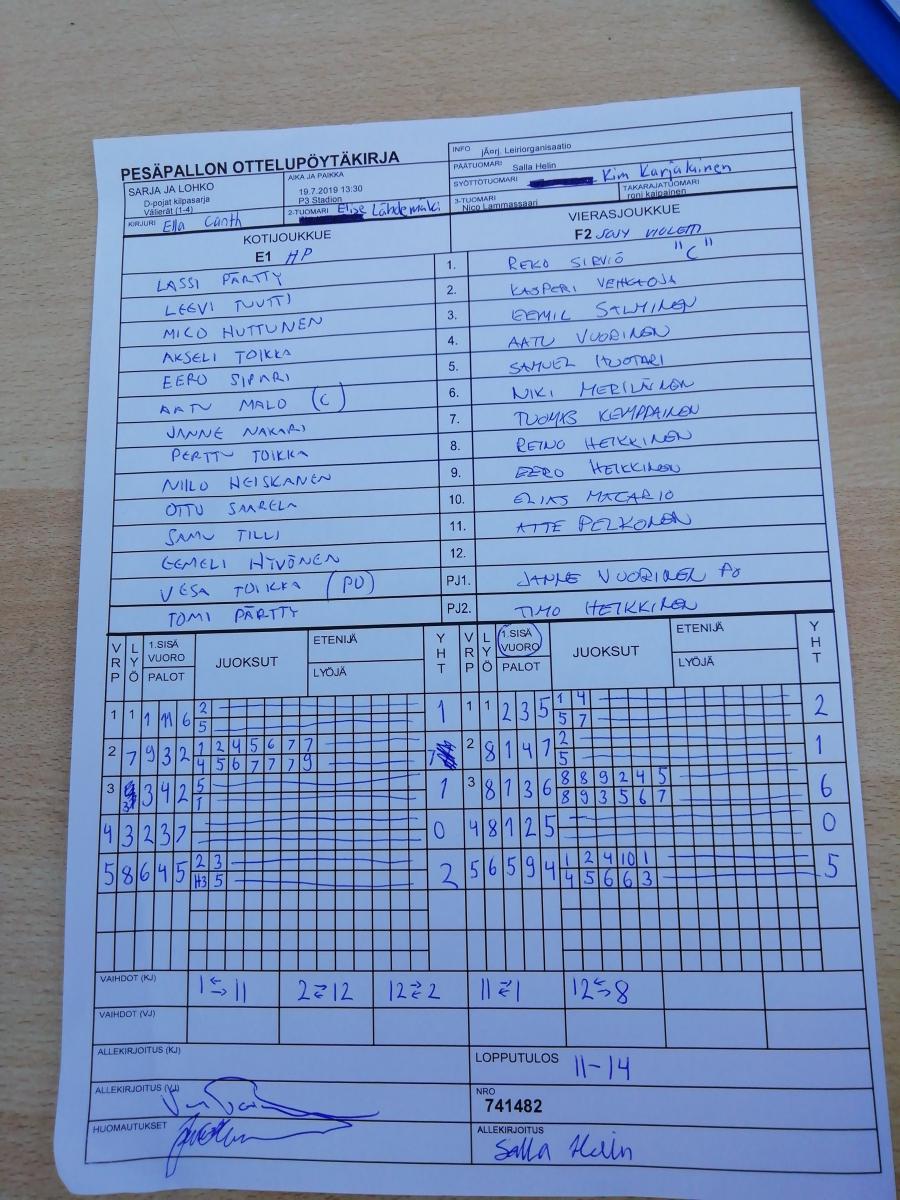 PESÄPALLON OTTELUPÖYTÄKIRJA
INFO jÄ¤rj. Leiriorganisaatio
SARJA JA LOHKO
D-pojat kilpasarja
Välierät (1-4)
AIKA JA PAIKKA
19.7.2019 13:30
P3 Stadion
PÄÄTUOMARI Salla Helin
SYÖTTÖTUOMARI Kim Karjalainen
KIRJURI Ella Canth
2-TUOMARI Elise Lähdemäki
3-TUOMARI Nico Lammassaari
TAKARAJATUOMARI roni kaipainen
KOTIJOUKKUE
E1 HP
VIERASJOUKKUE
F2 SoJy VIOLETTI
LASSI PÄRTTY 1. REKO SIRVIÖ "C"
LEEVI TUUTTI 2. KASPERI VEHKAOJA
MICO HUTTUNEN 3. EEMIL SALMINEN
AKSELI TOIKKA 4. AATU VUORINEN
EERO SIPARI 5. SAMUEL HUOTARI
AATU MALO (C) 6. NIKI MERILÄINEN
JANNE NAKARI 7. TUOMAS KEMPPAINEN
PERTTU TOIKKA 8. REINO HEIKKINEN
NIILO HEISKANEN 9. EERO HEIKKINEN
OTTO SAARELA 10. ELIAS MACARIO
SAMU TILLI 11. ATTE PELKONEN
EEMELI HYVÖNEN 12.
VESA TOIKKA (PJ) PJ1. JANNE VUORINEN PJ
TOMI PÄRTTY PJ2. TIMO HEIKKINEN
VRP LYÖ 1.SISÄ VUORO PALOT JUOKSUT ETENIJÄ LYÖJÄ YHT VRP LYÖ 1.SISÄ VUORO PALOT JUOKSUT ETENIJÄ LYÖJÄ YHT
1 1 1 11 6 2 1 1 1 2 3 5 1 4 2
5 5 7
2 7 9 3 2 1 2 4 5 6 7 7 7 2 8 1 4 7 2 1
4 5 6 7 7 7 9 5
3 3 4 2 5 1 3 8 1 3 6 8 8 9 2 4 5 6
1 8 9 3 5 6 7
4 3 2 3 7 0 4 8 1 2 5 0
5 8 6 4 5 2 3 2 5 6 5 9 4 1 2 4 10 1 5
H3 5 4 5 6 6 3
VAIHDOT (KJ) 1 ⇆ 11 2 ⇄ 12 12 ⇄ 2 11 ⇄ 1 12 ⇆ 8
VAIHDOT (VJ)
ALLEKIRJOITUS (KJ)
LOPPUTULOS 11-14
ALLEKIRJOITUS (VJ)
NRO
741482
HUOMAUTUKSET
ALLEKIRJOITUS
Salla Helin